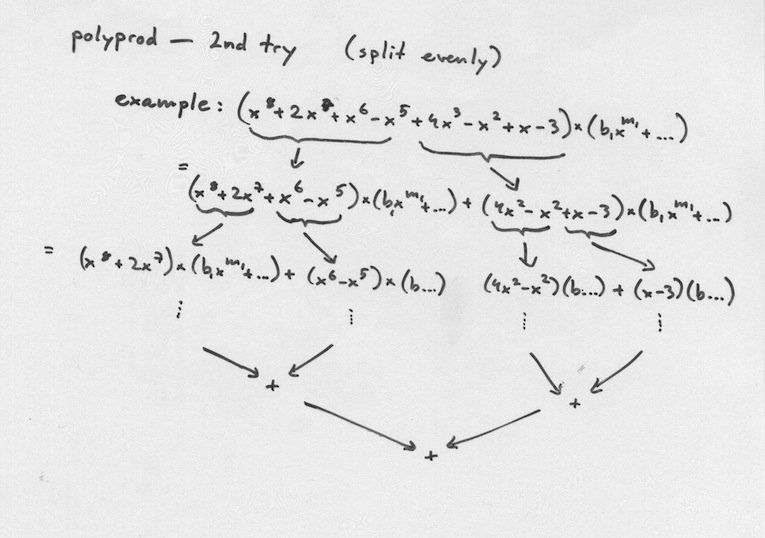 polyprod — 2nd try (split evenly)
example: (x⁸+2x⁷+x⁶−x⁵+4x³−x²+x−3)×(b₁xᵐ¹+...)
= (x⁸+2x⁷+x⁶−x⁵)×(b₁xᵐ¹+...) + (4x²−x²+x−3)×(b₁xᵐ¹+...)
= (x⁸+2x⁷)×(b₁xᵐ¹+...) + (x⁶−x⁵)×(b...) (4x²−x²)(b...) + (x−3)(b...)
⋮ ⋮ ⋮ ⋮
+ +
+